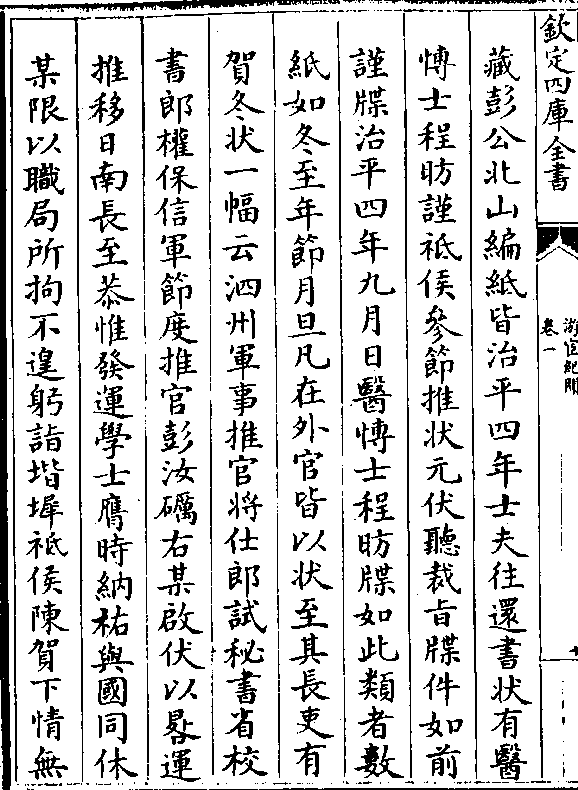 欽定四庫全書
游宦紀聞
卷一
藏彭公北山編紙皆治平四年士夫往還書状有醫
愽士程昉謹祗候參節推状元伏聽裁旨牒件如前
謹牒治平四年九月日醫愽士程昉牒如此類者數
紙如冬至年節月旦凡在外官皆以状至其長吏有
賀冬状一幅云泗州軍事推官将仕郎試秘書省校
書郎權保信軍節度推官彭汝礪右某啟伏以晷運
推移日南長至恭惟發運學士膺時納祐與國同休
某限以職局所拘不遑躬詣堦墀祗候陳賀下情無